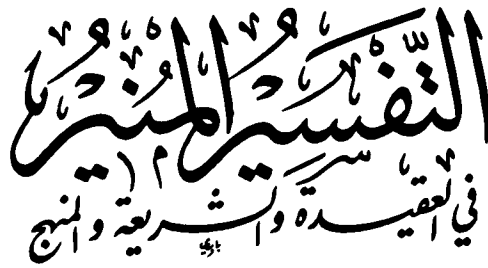 التَّفْسِيرُ المُنِيرُ
في العقيدة والشريعة والمنهج